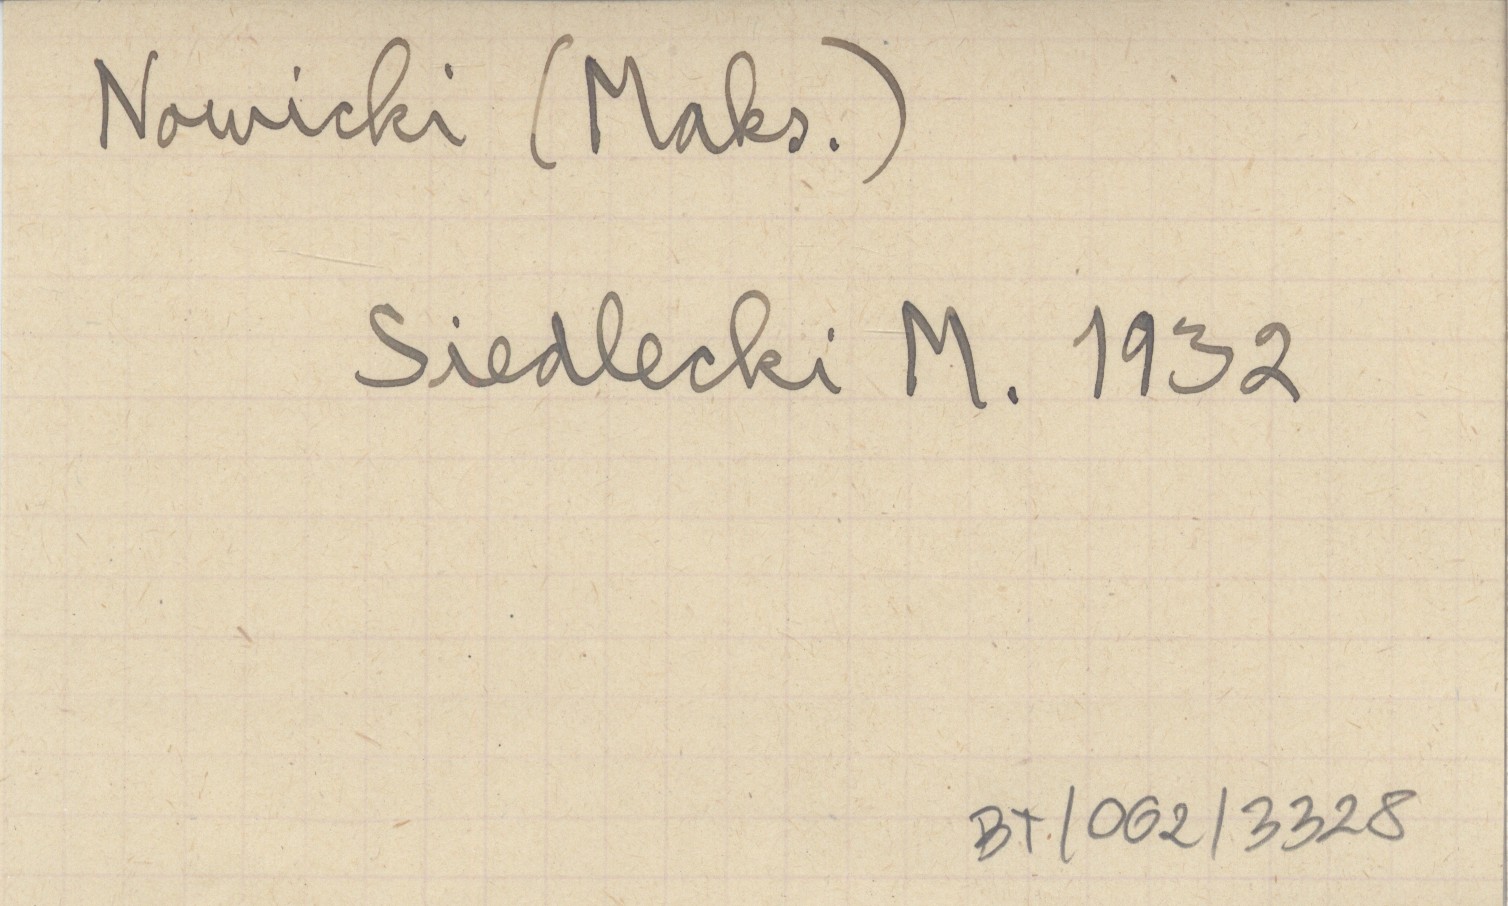 Nowicki (Maks.)
Siedlecki M. 1932
BT/OG2/3328